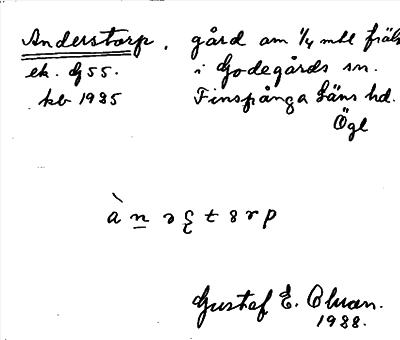 Anderstorp. gård om 1/4 mtl fräls
ek. G 55. i Godegårds sn.
kb 1985 Finspånga Läns hd.
Ögl
Gustaf E.
1988.